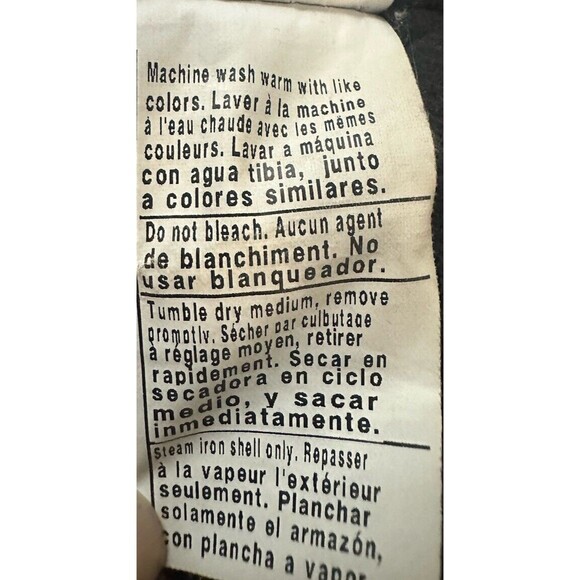 Machine wash warm with like
colors. Laver à la machine
à l'eau chaude avec les mêmes
couleurs. Lavar a máquina
con agua tibia, junto
a colores similares.
Do not bleach. Aucun agent
de blanchiment. No
usar blanqueador.
Tumble dry medium, remove
promptly. Sécher par culbutage
à réglage moyen, retirer
rapidement. Secar en
secadora en ciclo
medio, y sacar
inmediatamente.
Steam iron shell only. Repasser
à la vapeur l'extérieur
seulement. Planchar
solamente el armazón,
con plancha a vapor